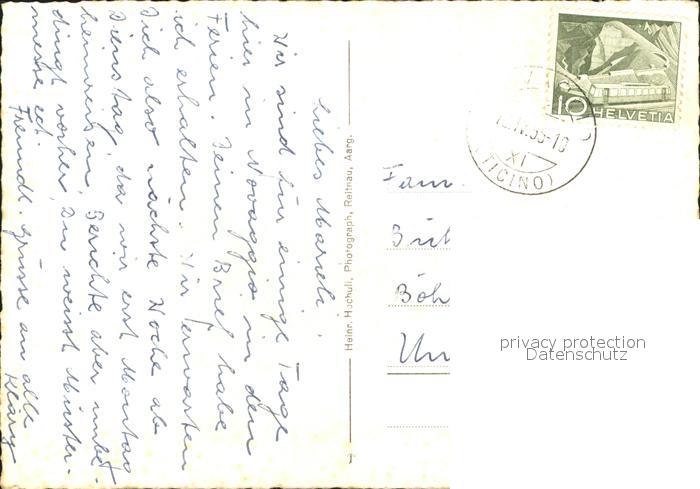 Liebes Marieli!
Wir sind für einige Tage
hier in Novaggio in den
Ferien. Deinen Brief habe
ich erhalten. Wir erwarten
Dich also nächste Woche ab
Dienstag, da wir erst Montag
heimreisen. Berichte aber unbe-
dingt vorher, Du weisst Muster-
messe etc.
Freundl. Grüsse an alle
Kläry
Heinr. Hochuli, Photograph, Reitnau, Aarg.
10 HELVETIA
XI
(TICINO)
Fam.
Böh
Un
privacy protection
Datenschutz